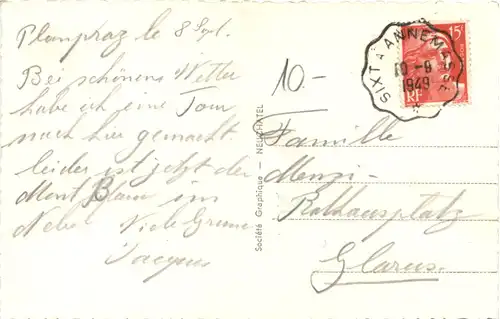 Planpraz le 8 Sept.
Bei schönem Wetter
habe ich eine Tour
nach hier gemacht
leider ist jetzt der
Mont Blanc im
Nebel Viele Grüsse
Jacques
10.-
SIXT A ANNEMASSE
10 -9
1949
15F
RF
Société Graphique — NEUCHATEL
Familie
Menzi-
Rathausplatz
Glarus.